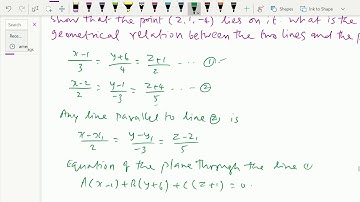 Share
Shapes
Show that the point (2,1,-4) lies on it. What is the
geometrical relation between the two lines and the p
x-1/3 = y+6/4 = z+1/2 ---- ①
x-2/2 = y-1/-3 = z+4/5 ---- ②
Any line parallel to line ② is
x-x₁/2 = y-y₁/-3 = z-z₁/5
Equation of the plane through the line ①
A(x-1)+B(y+6)+C(z+1)=0.